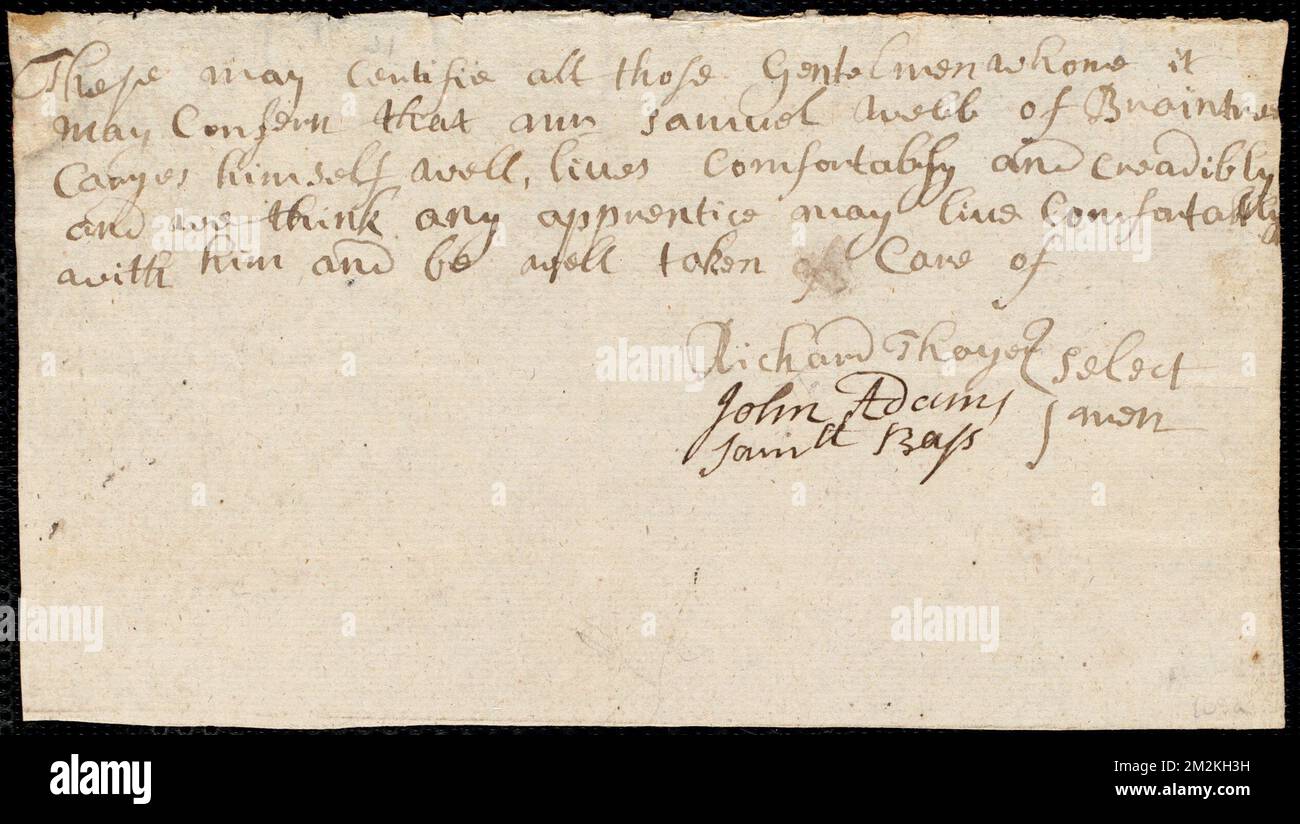 These may Certifie all those Gentelmen whome it
may Consern that mr Samuel Webb of Braintree
Caryes himself well, lives Comfortably and Creadibly
and we think any apprentice may live Comfortably
with him and be well taken Care of
Richard Thayer Select
John Adams men
Samll Bass
alamy
Image ID: 2M2KH3H
www.alamy.com